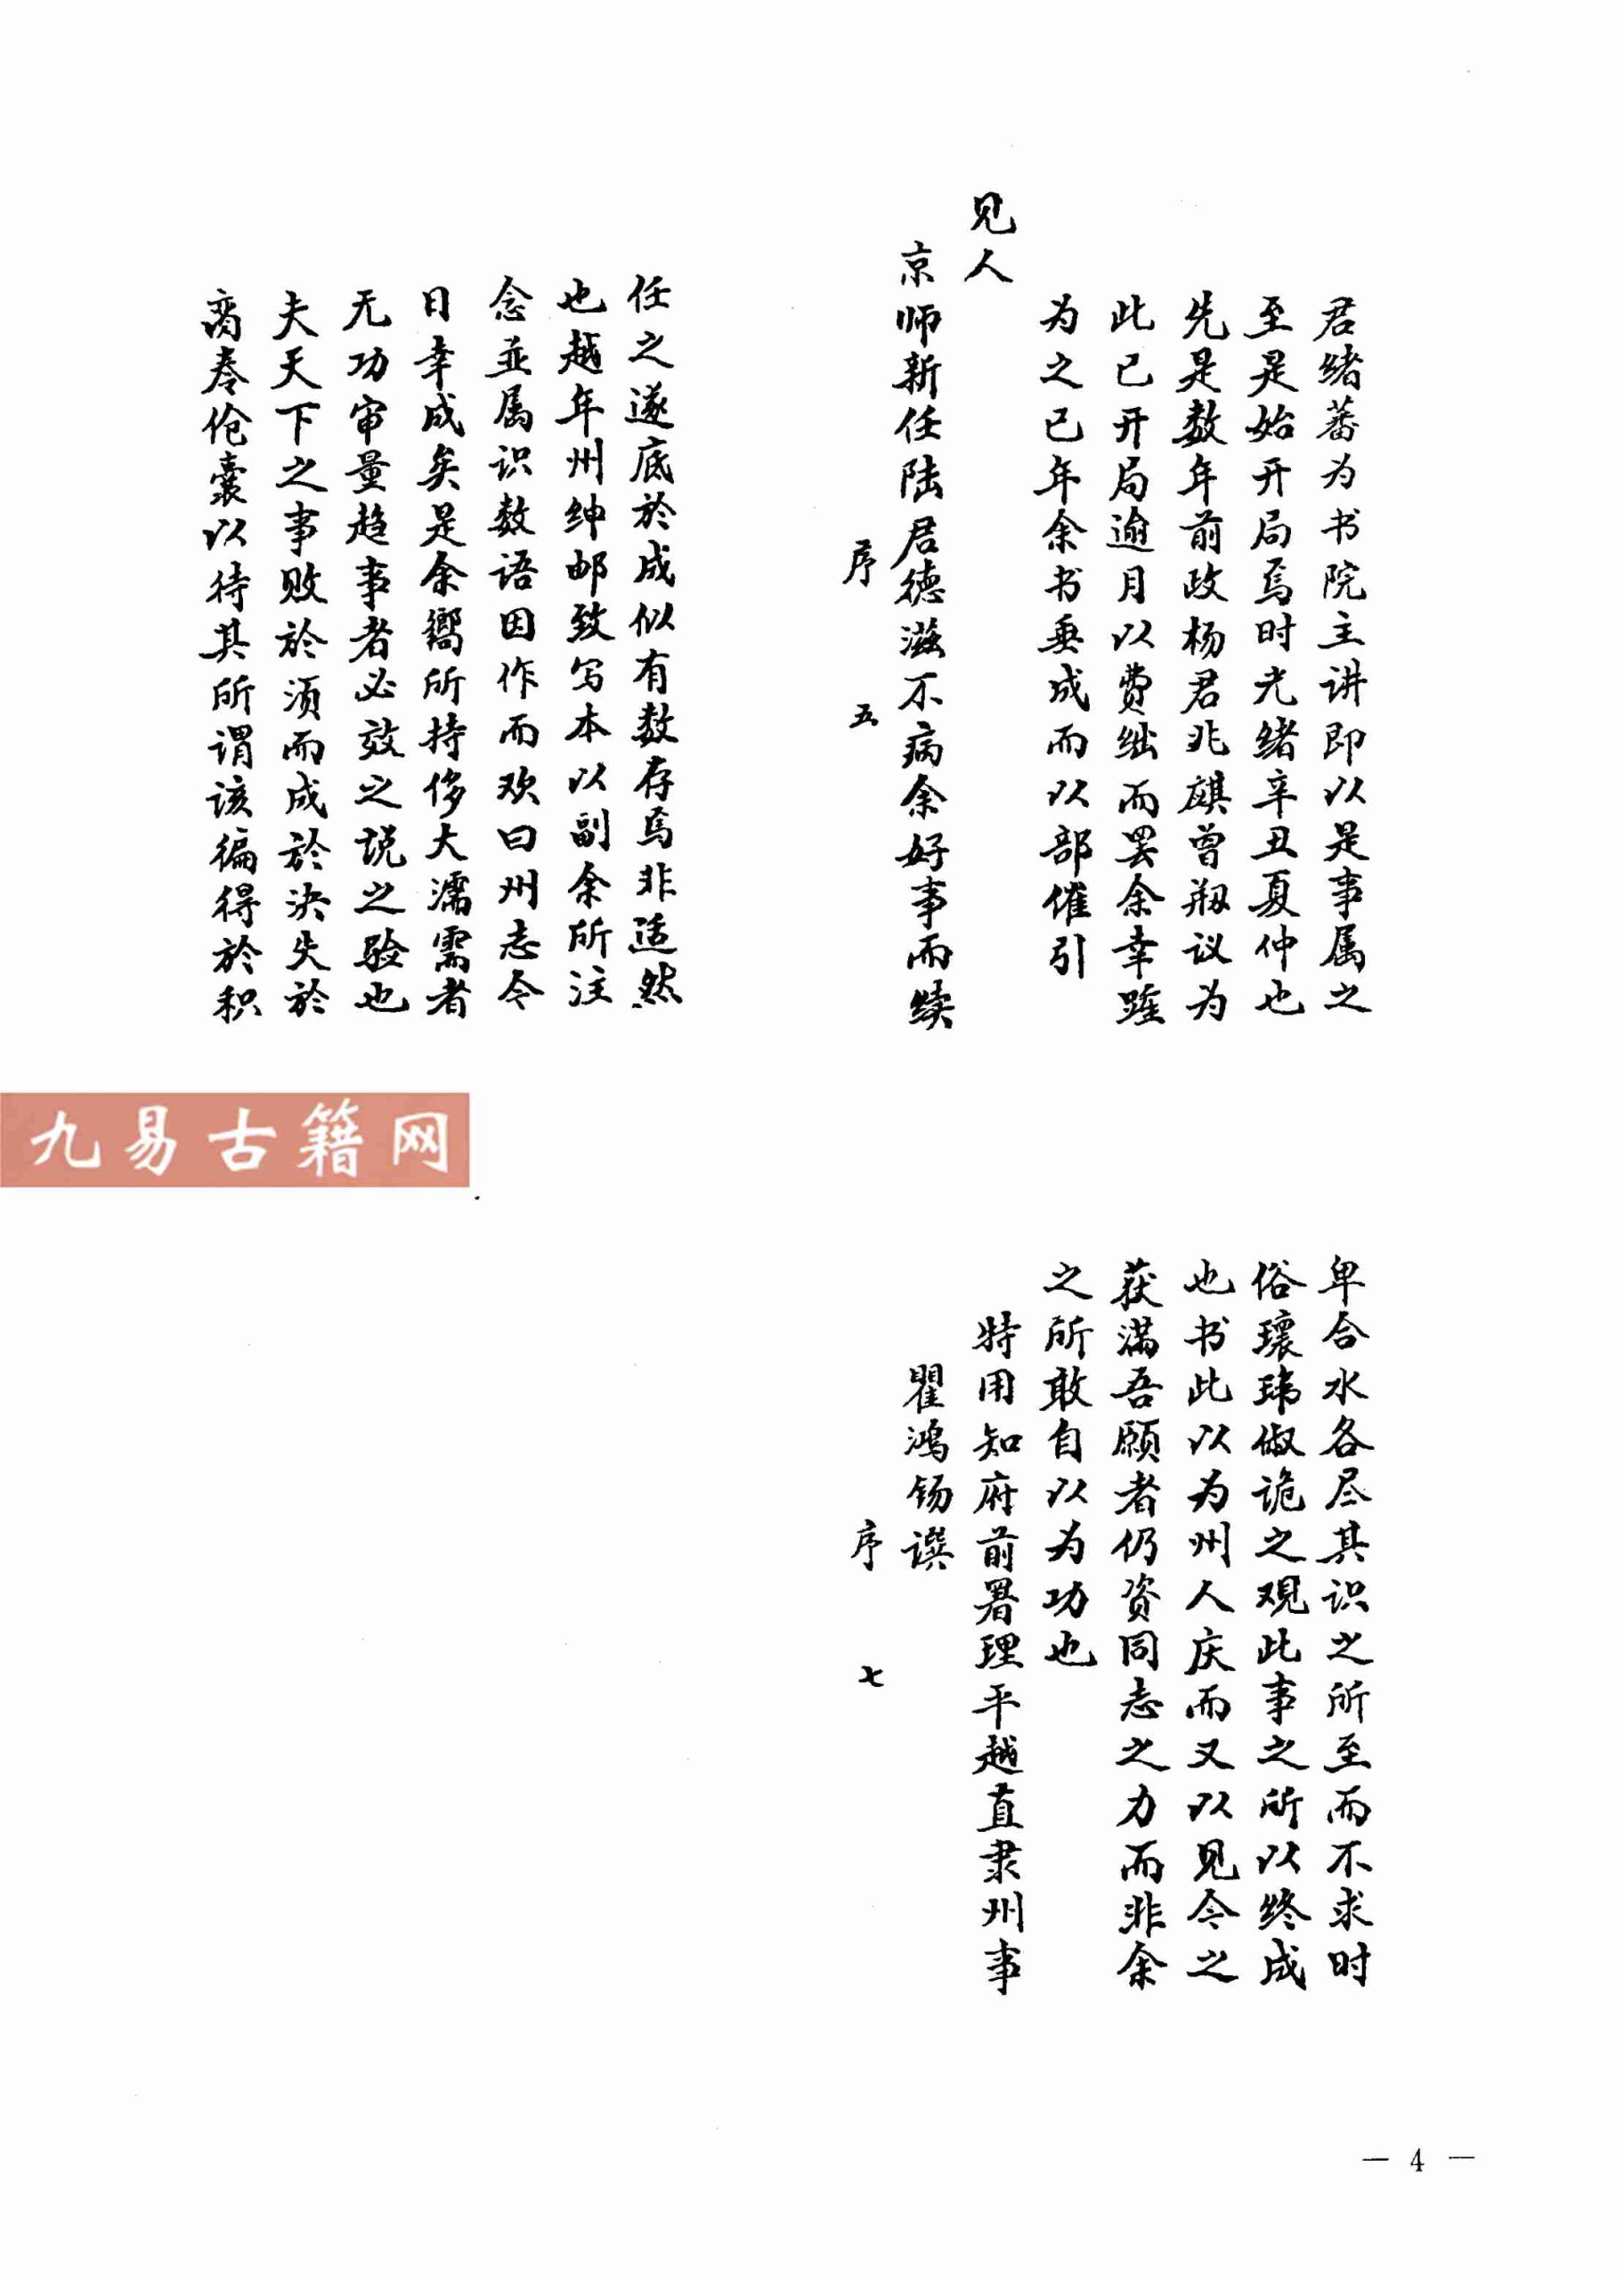 君绪蕃为书院主讲即以是事属之
至是始开局焉时光绪辛丑夏仲也
先是数年前政杨君兆麒曾刱议为
此已开局逾月以费绌而罢余幸踵
为之已年余书垂成而以部催引
见人
京师新任陆君德滋不病余好事而续
序 五
任之遂底於成似有数存焉非适然
也越年州绅邮致写本以副余所注
念並属识数语因作而欢曰州志今
日幸成矣是余嚮所持侈大濡需者
无功审量趋事者必效之说之验也
夫天下之事败於须而成於决失於
脔卷伧囊以待其所谓该徧得於积
卑合水各尽其识之所至而不求时
俗瓌玮俶诡之观此事之所以终成
也书此以为州人庆而又以见今之
获满吾愿者仍资同志之力而非余
之所敢自以为功也
特用知府前署理平越直隶州事
瞿鸿锡譔
序 七
九易古籍网
— 4 —